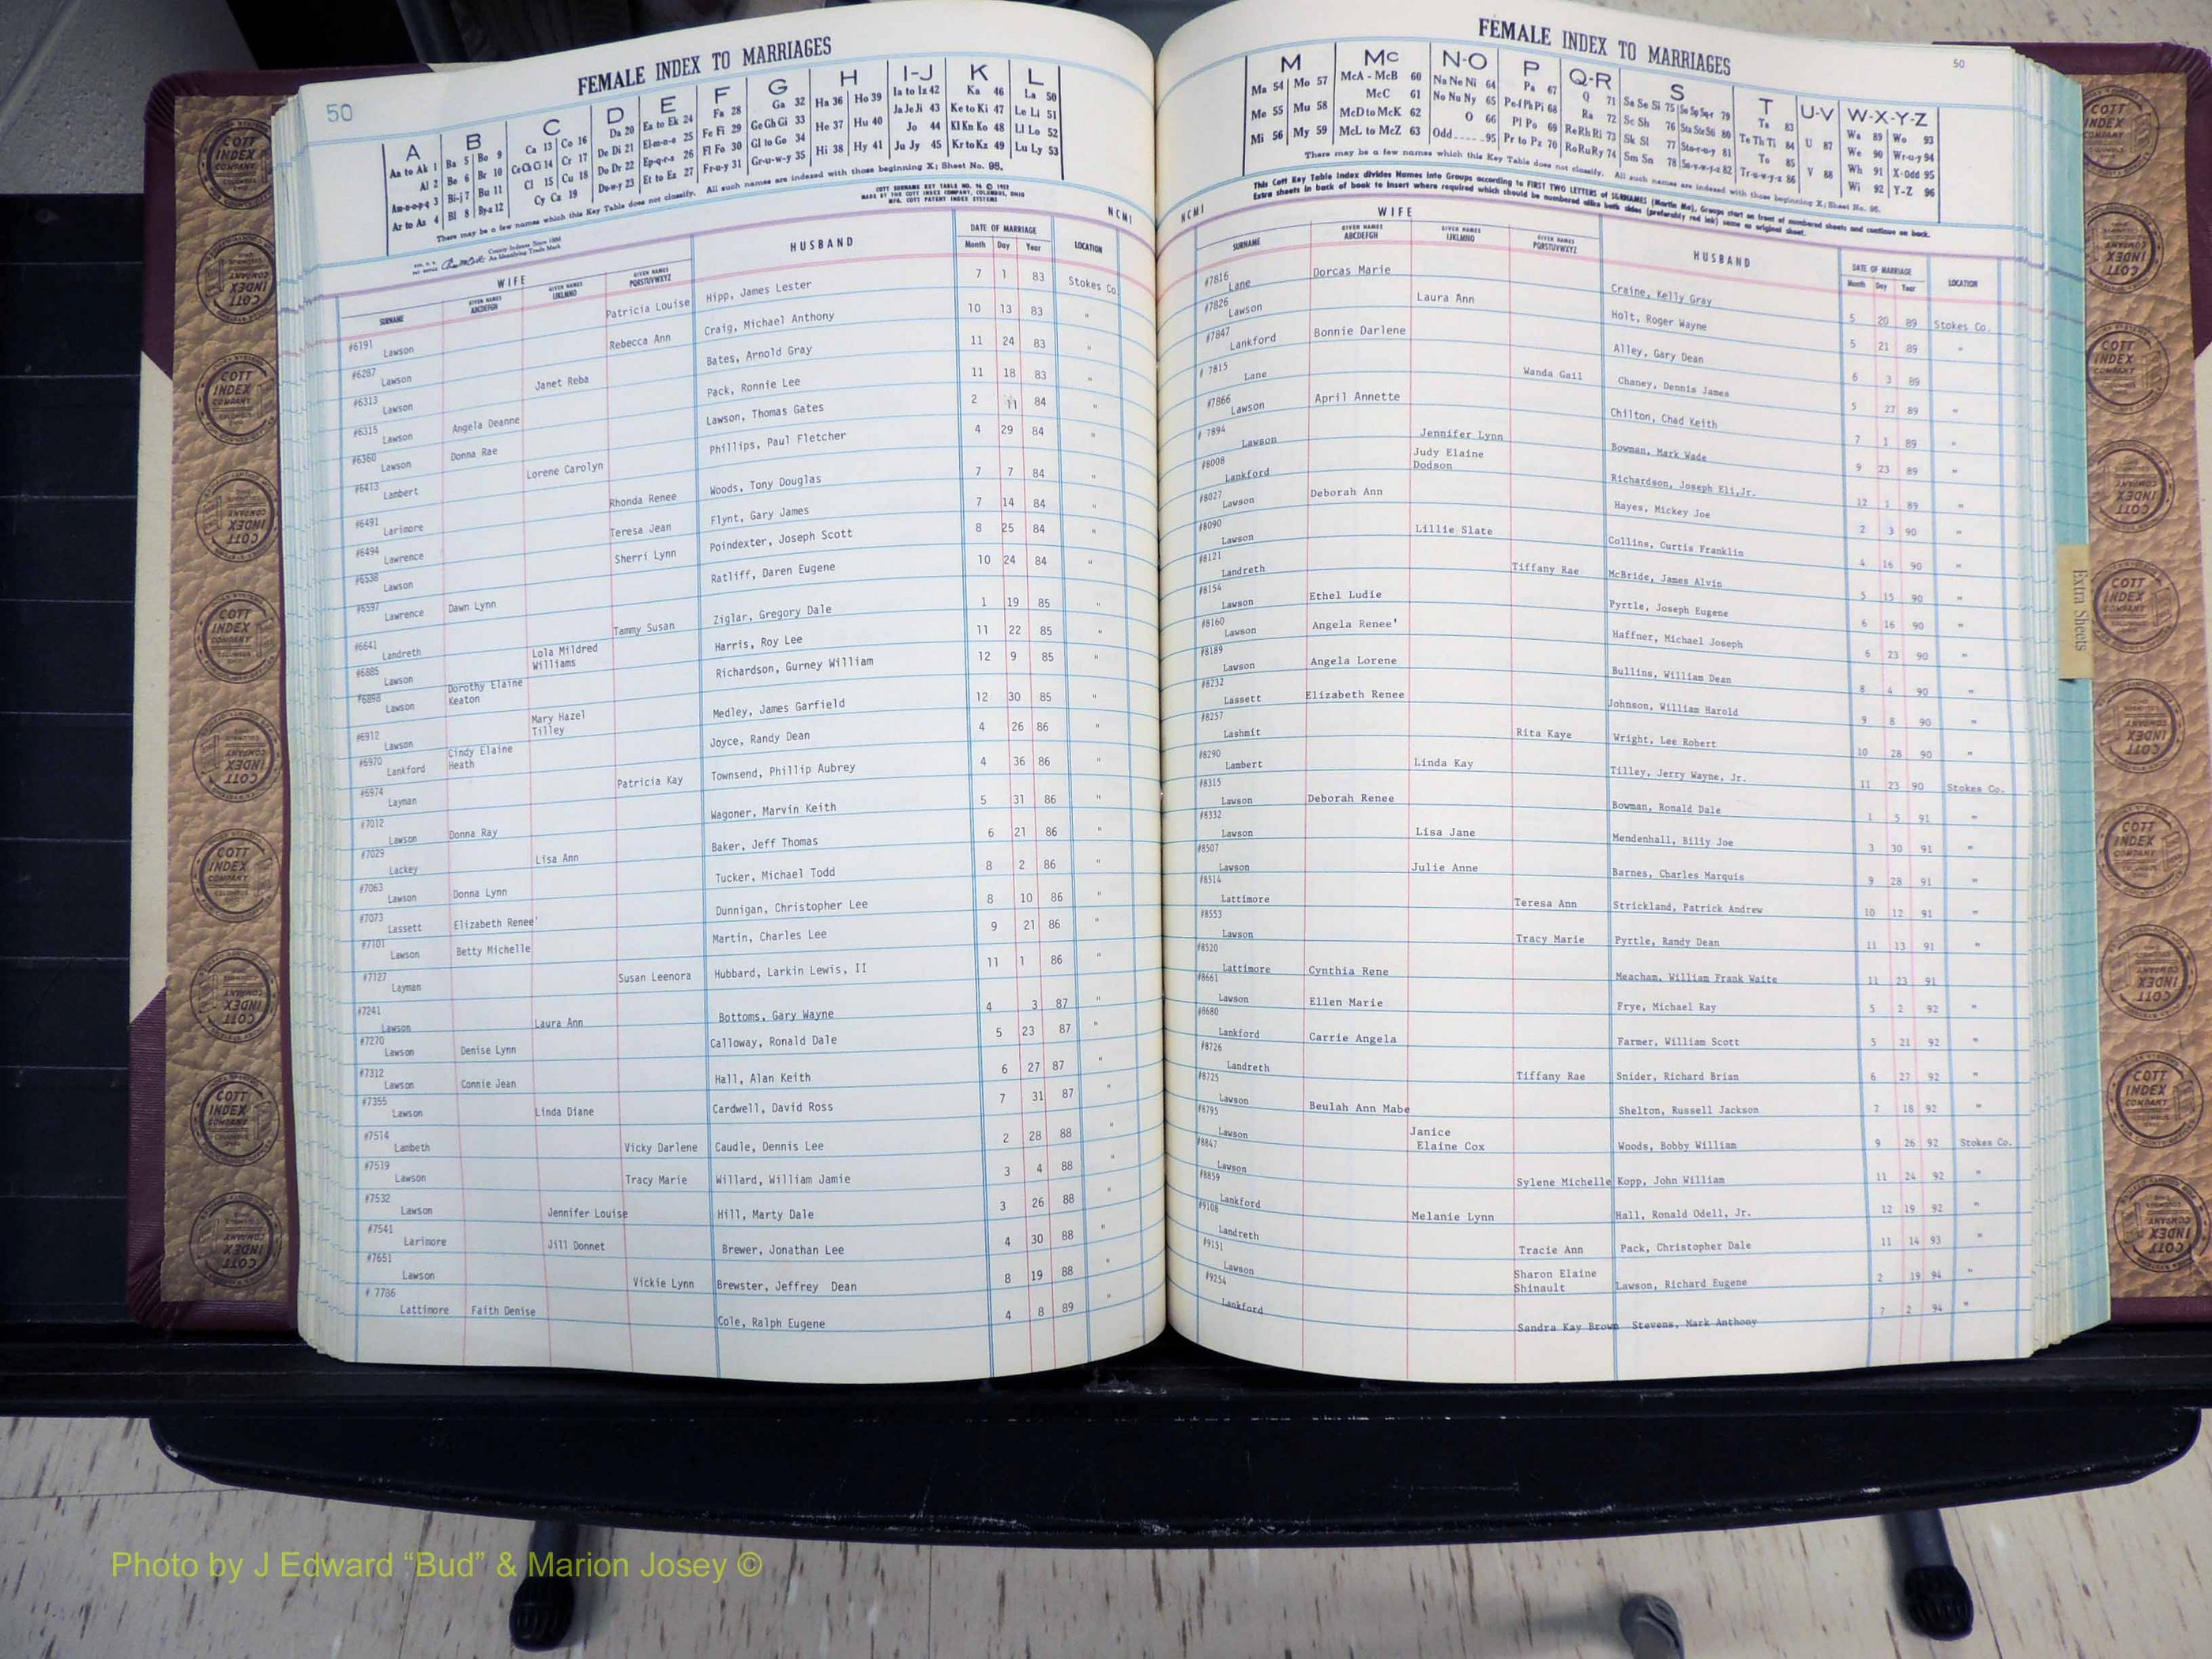 50
FEMALE INDEX TO MARRIAGES
A B C D E F G H I-J K L
Aa to Ak 1 Ba 5 Bo 9 Ca 13 Co 16 Da 20 Ea to Ek 24 Fa 28 Ga 32 Ha 36 Ho 39 Ia to Iz 42 Ka 46 La 50
Al 2 Be 6 Br 10 Ce Ch Ci 14 Cr 17 De Di 21 El-m-n-o 25 Fe Fi 29 Ge Gh Gi 33 He 37 Hu 40 Ja Je Ji 43 Ke to Ki 47 Le Li 51
Am-n-o-p-q 3 Bi-j 7 Bu 11 Cl 15 Cu 18 Do Dr 22 Ep-q-r-s 26 Fl Fo 30 Gl to Go 34 Hi 38 Hy 41 Jo 44 Kl Kn Ko 48 Ll Lo 52
Ar to Az 4 Bl 8 By-z 12 Cy Cz 19 Du-w-y 23 Et to Ez 27 Fr-u-y 31 Gr-u-w-y 35 Ju Jy 45 Kr to Kz 49 Lu Ly 53
There may be a few names which this Key Table does not classify. All such names are indexed with those beginning X; Sheet No. 95.
COTT SURNAME KEY TABLE NO. 96 © 1953
MADE BY THE COTT INDEX COMPANY, COLUMBUS, OHIO
MFG. COTT PATENT INDEX SYSTEMS
County Indexes Since 1888
An Identifying Trade Mark
NCM1
WIFE HUSBAND DATE OF MARRIAGE LOCATION
SURNAME GIVEN NAMES ABCDEFGH GIVEN NAMES IJKLMNO GIVEN NAMES PQRSTUVWXYZ Month Day Year
#6191 Lawson Patricia Louise Hipp, James Lester 7 1 83 Stokes Co.
#6287 Lawson Rebecca Ann Craig, Michael Anthony 10 13 83 "
#6313 Lawson Janet Reba Bates, Arnold Gray 11 24 83 "
#6315 Lawson Angela Deanne Pack, Ronnie Lee 11 18 83 "
#6360 Lawson Donna Rae Lawson, Thomas Gates 2 11 84 "
#6413 Lambert Lorene Carolyn Phillips, Paul Fletcher 4 29 84 "
#6491 Larimore Rhonda Renee Woods, Tony Douglas 7 7 84 "
#6494 Lawrence Teresa Jean Flynt, Gary James 7 14 84 "
#6538 Lawson Sherri Lynn Poindexter, Joseph Scott 8 25 84 "
#6597 Lawrence Dawn Lynn Ratliff, Daren Eugene 10 24 84 "
#6641 Landreth Tammy Susan Ziglar, Gregory Dale 1 19 85 "
#6885 Lawson Lola Mildred Williams Harris, Roy Lee 11 22 85 "
#6898 Lawson Dorothy Elaine Keaton Richardson, Gurney William 12 9 85 "
#6912 Lawson Mary Hazel Tilley Medley, James Garfield 12 30 85 "
#6970 Lankford Cindy Elaine Heath Joyce, Randy Dean 4 26 86 "
#6974 Layman Patricia Kay Townsend, Phillip Aubrey 4 36 86 "
#7012 Lawson Donna Ray Wagoner, Marvin Keith 5 31 86 "
#7029 Lackey Lisa Ann Baker, Jeff Thomas 6 21 86 "
#7063 Lawson Donna Lynn Tucker, Michael Todd 8 2 86 "
#7073 Lassett Elizabeth Renee' Dunnigan, Christopher Lee 8 10 86 "
#7101 Lawson Betty Michelle Martin, Charles Lee 9 21 86 "
#7127 Layman Susan Leenora Hubbard, Larkin Lewis, II 11 1 86 "
#7241 Lawson Laura Ann Bottoms, Gary Wayne 4 3 87 "
#7270 Lawson Denise Lynn Calloway, Ronald Dale 5 23 87 "
#7312 Lawson Connie Jean Hall, Alan Keith 6 27 87 "
#7355 Lawson Linda Diane Cardwell, David Ross 7 31 87 "
#7514 Lambeth Vicky Darlene Caudle, Dennis Lee 2 28 88 "
#7519 Lawson Tracy Marie Willard, William Jamie 3 4 88 "
#7532 Lawson Jennifer Louise Hill, Marty Dale 3 26 88 "
#7541 Larimore Jill Donnet Brewer, Jonathan Lee 4 30 88 "
#7651 Lawson Vickie Lynn Brewster, Jeffrey Dean 8 19 88 "
# 7786 Lattimore Faith Denise Cole, Ralph Eugene 4 8 89 "
50
FEMALE INDEX TO MARRIAGES
M Mc N-O P Q-R S T U-V W-X-Y-Z
Ma 54 Mo 57 McA - McB 60 Na Ne Ni 64 Pa 67 Q 71 Sa Se Si 75 So Sp Sq-r 79 Ta 83 U 87 Wa 89 Wo 93
Me 55 Mu 58 McC 61 No Nu Ny 65 Pe-f Ph Pi 68 Ra 72 Sc Sh 76 Sta Ste Sti 80 Te Th Ti 84 V 88 We 90 Wr-u-y 94
Mi 56 My 59 McD to McK 62 O 66 Pl Po 69 Re Rh Ri 73 Sk Sl 77 Sto-r-u-y 81 To 85 Wh 91 X-Odd 95
McL to McZ 63 Odd 95 Pr to Pz 70 Ro Ru Ry 74 Sm Sn 78 Su-v-w-y-z 82 Tr-u-w-y-z 86 Wi 92 Y-Z 96
There may be a few names which this Key Table does not classify. All such names are indexed with those beginning X; Sheet No. 95.
This Cott Key Table Index divides Names into Groups according to FIRST TWO LETTERS of SURNAMES (Martin Ma), Groups start on front of numbered sheets and continue on back.
Extra sheets in back of book to insert where required which should be numbered alike both sides (preferably red ink) same as original sheet.
NCM1
WIFE HUSBAND DATE OF MARRIAGE LOCATION
SURNAME GIVEN NAMES ABCDEFGH GIVEN NAMES IJKLMNO GIVEN NAMES PQRSTUVWXYZ Month Day Year
#7816 Lane Dorcas Marie Craine, Kelly Gray 5 20 89 Stokes Co.
#7826 Lawson Laura Ann Holt, Roger Wayne 5 21 89 "
#7847 Lankford Bonnie Darlene Alley, Gary Dean 6 3 89
# 7815 Lane Wanda Gail Chaney, Dennis James 5 27 89 "
#7866 Lawson April Annette Chilton, Chad Keith 7 1 89 "
# 7894 Lawson Jennifer Lynn Bowman, Mark Wade 9 23 89 "
#8008 Lankford Judy Elaine Dodson Richardson, Joseph Eli,Jr. 12 1 89 "
#8027 Lawson Deborah Ann Hayes, Mickey Joe 2 3 90 "
#8090 Lawson Lillie Slate Collins, Curtis Franklin 4 16 90 "
#8121 Landreth Tiffany Rae McBride, James Alvin 5 15 90 "
#8154 Lawson Ethel Ludie Pyrtle, Joseph Eugene 6 16 90 "
#8160 Lawson Angela Renee' Haffner, Michael Joseph 6 23 90 "
#8189 Lawson Angela Lorene Bullins, William Dean 8 4 90 "
#8232 Lassett Elizabeth Renee Johnson, William Harold 9 8 90 "
#8257 Lashmit Rita Kaye Wright, Lee Robert 10 28 90 "
#8290 Lambert Linda Kay Tilley, Jerry Wayne, Jr. 11 23 90 Stokes Co.
#8315 Lawson Deborah Renee Bowman, Ronald Dale 1 5 91 "
#8332 Lawson Lisa Jane Mendenhall, Billy Joe 3 30 91 "
#8507 Lawson Julie Anne Barnes, Charles Marquis 9 28 91 "
#8514 Lattimore Teresa Ann Strickland, Patrick Andrew 10 12 91 "
#8553 Lawson Tracy Marie Pyrtle, Randy Dean 11 13 91 "
#8520 Lattimore Cynthia Rene Meacham, William Frank Waite 11 23 91
#8661 Lawson Ellen Marie Frye, Michael Ray 5 2 92 "
#8680 Lankford Carrie Angela Farmer, William Scott 5 21 92 "
#8726 Landreth Tiffany Rae Snider, Richard Brian 6 27 92 "
#8725 Lawson Beulah Ann Mabe Shelton, Russell Jackson 7 18 92 "
#8795 Lawson Janice Elaine Cox Woods, Bobby William 9 26 92 Stokes Co.
#8847 Lawson Sylene Michelle Kopp, John William 11 24 92 "
#8859 Lankford Melanie Lynn Hall, Ronald Odell, Jr. 12 19 92 "
#9108 Landreth Tracie Ann Pack, Christopher Dale 11 14 93 "
#9151 Lawson Sharon Elaine Shinault Lawson, Richard Eugene 2 19 94 "
#9254 Lankford Sandra Kay Brown Stevens, Mark Anthony 7 2 94 "
Extra Sheets
COTT INDEX COMPANY COLUMBUS OHIO
Photo by J Edward “Bud” & Marion Josey ©